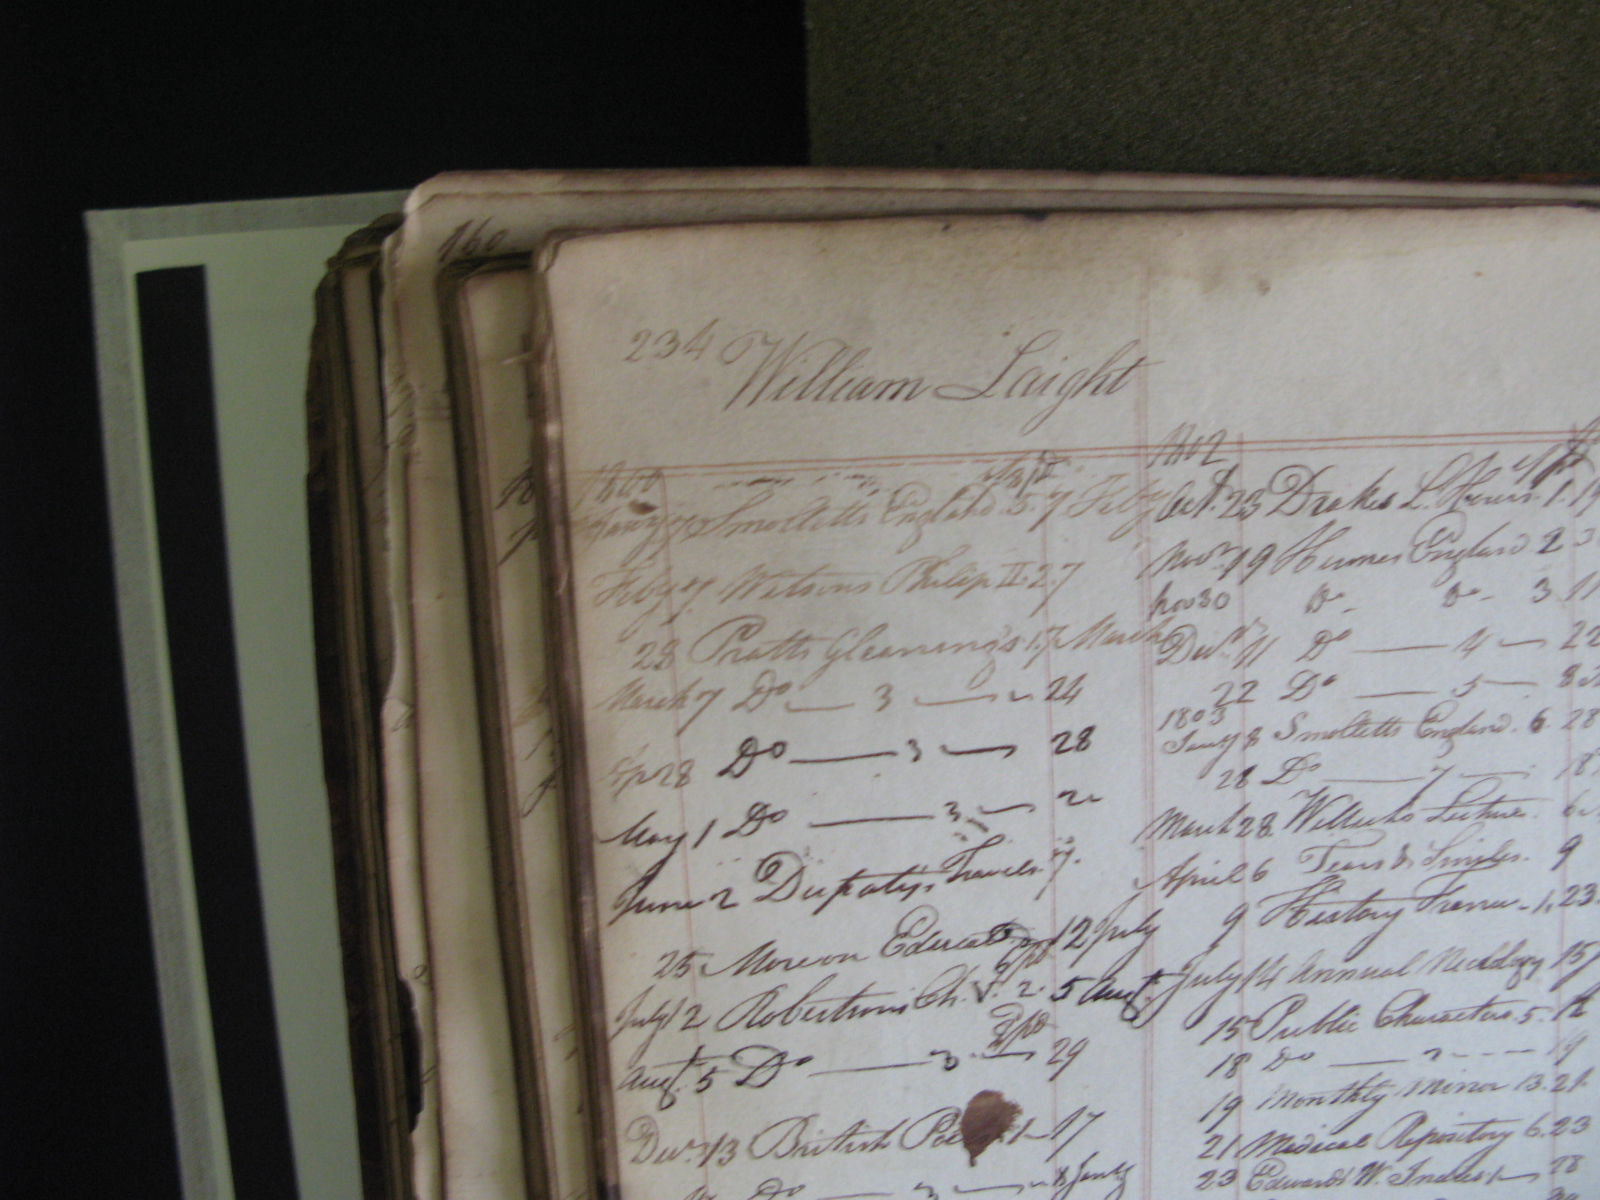 160
234 William Laight
1800
Smolletts England. 5. 7 Feby
Feby 7 Watsons Philip II. 2. 7
28 Pratts Gleanings 1. 7 March
March 7 Do — 3 — 24
28 Do — 3 — 28
May 1 Do — 3 —
June 2 Dupatys Travels 7.
25 Moreon Educat 12 July
July 12 Robertsons Ch. V. 2. 5 Augt
Augt. 5 Do — 3 — 29
Decr. 13 British 1 — 17
Do — 3 — 8 Jany
1802
Oct. 23 Drakes L. Hours. 1.
Novr. 19 Humes England 2
Nov 30 Do Do 3 11
Decr. 11 Do — 4 — 22
22 Do — 5 —
1803
Jany 8 Smolletts England. 6. 28
28 Do — 7 — 18
March 28 Lectures
April 6 Tears & Smiles. 9
9 History France 1. 23.
July 14 Annual Necrology 15
15 Public Characters 5. 18
18 Do — 19
19 Monthly Mirror 13. 21.
21 Medical Repository 6. 23
23 Edwards W. Indies 1 — 28